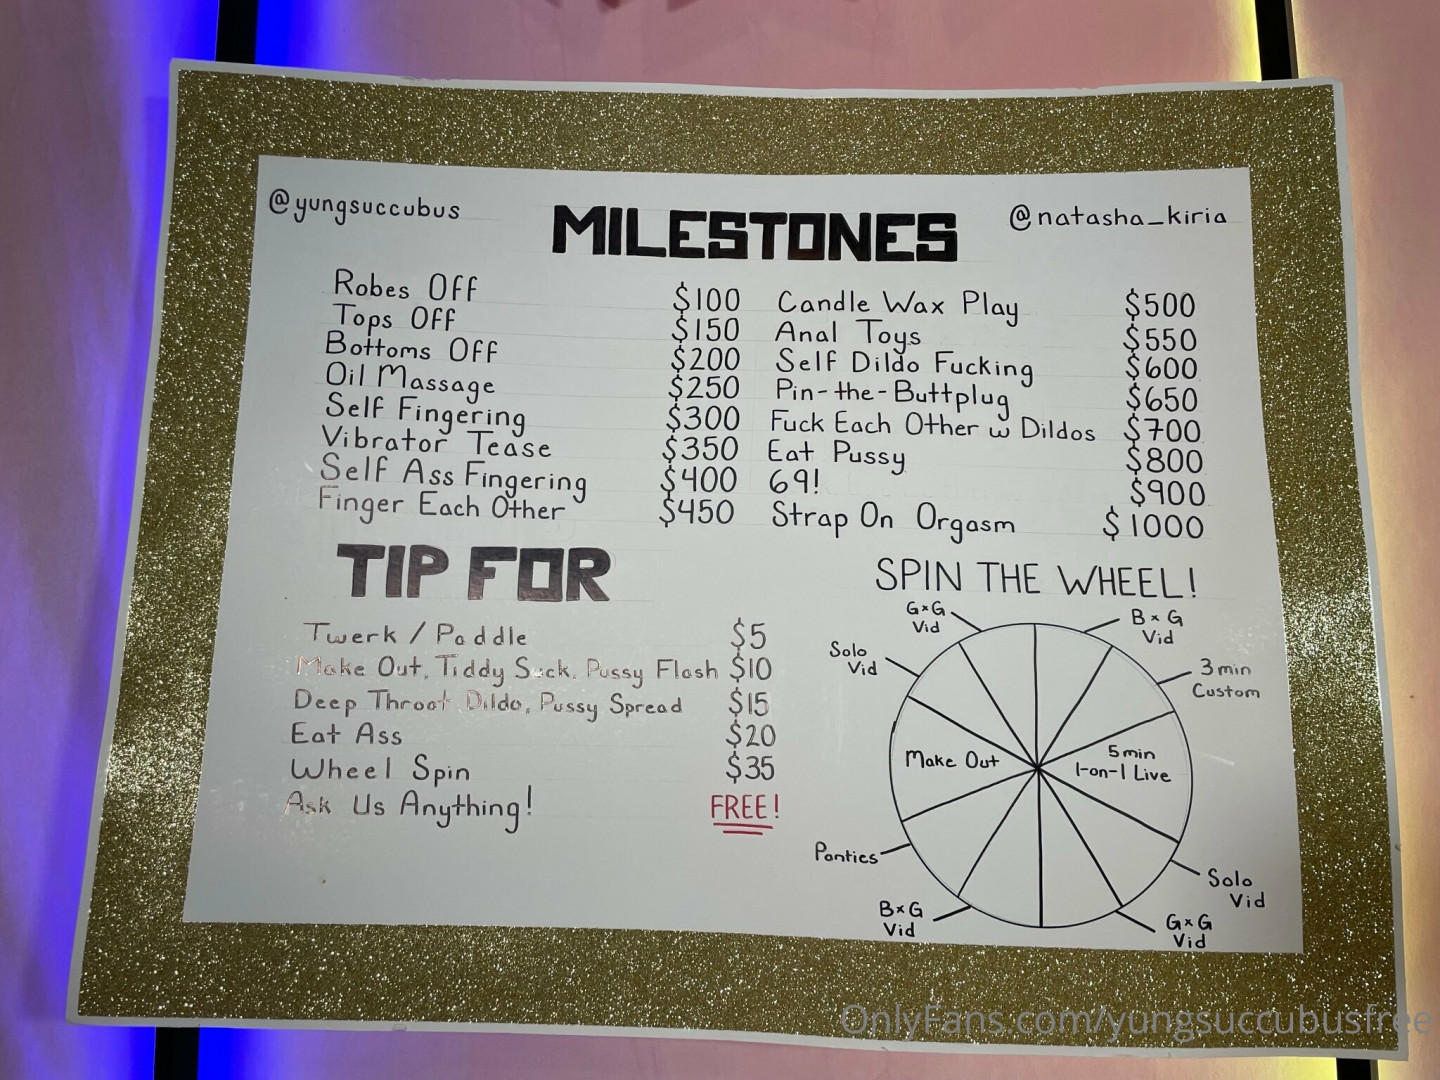 @yungsuccubus
MILESTONES
@natasha_kiria
Robes Off $100
Tops Off $150
Bottoms Off $200
Oil Massage $250
Self Fingering $300
Vibrator Tease $350
Self Ass Fingering $400
Finger Each Other $450
Candle Wax Play $500
Anal Toys $550
Self Dildo Fucking $600
Pin-the-Buttplug $650
Fuck Each Other w Dildos $700
Eat Pussy $800
69! $900
Strap On Orgasm $1000
TIP FOR
Twerk / Paddle $5
Make Out, Tiddy Suck, Pussy Flash $10
Deep Throat Dildo, Pussy Spread $15
Eat Ass $20
Wheel Spin $35
Ask Us Anything! FREE!
SPIN THE WHEEL!
GxG
Vid
BxG
Vid
Solo
Vid
3 min
Custom
Make Out
5 min
1-on-1 Live
Panties
Solo
Vid
BxG
Vid
GxG
Vid
OnlyFans.com/yungsuccubusfree